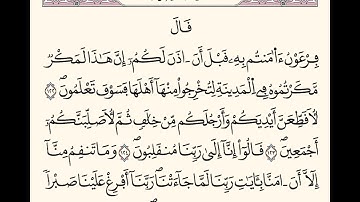 قَالَ
فِرْعَوْنُ ءَا۬مَنتُم بِهِۦ قَبْلَ أَنْ ـ اذَنَ لَكُمُۥٓ إِنَّ هَٰذَا لَمَكْرٞ
مَّكَرْتُمُوهُ فِے اِ۬لْمَدِينَةِ لِتُخْرِجُواْ مِنْهَآ أَهْلَهَا فَسَوْفَ تَعْلَمُونَۖ ١٢٢
لَأُقَطِّعَنَّ أَيْدِيَكُمْ وَأَرْجُلَكُم مِّنْ خِلَٰفٖ ثُمَّ لَأُصَلِّبَنَّكُمُۥٓ
أَجْمَعِينَۖ ١٢٣ قَالُوٓاْ إِنَّآ إِلَىٰ رَبِّنَا مُنقَلِبُونَۖ ١٢٤ وَمَا تَنقِمُ مِنَّآ
إِلَّآ أَنَ ـ امَنَّا بِـَٔايَٰتِ رَبِّنَا لَمَّا جَآءَتْنَاۖ رَبَّنَآ أَفْرِغْ عَلَيْنَا صَبْراٗ